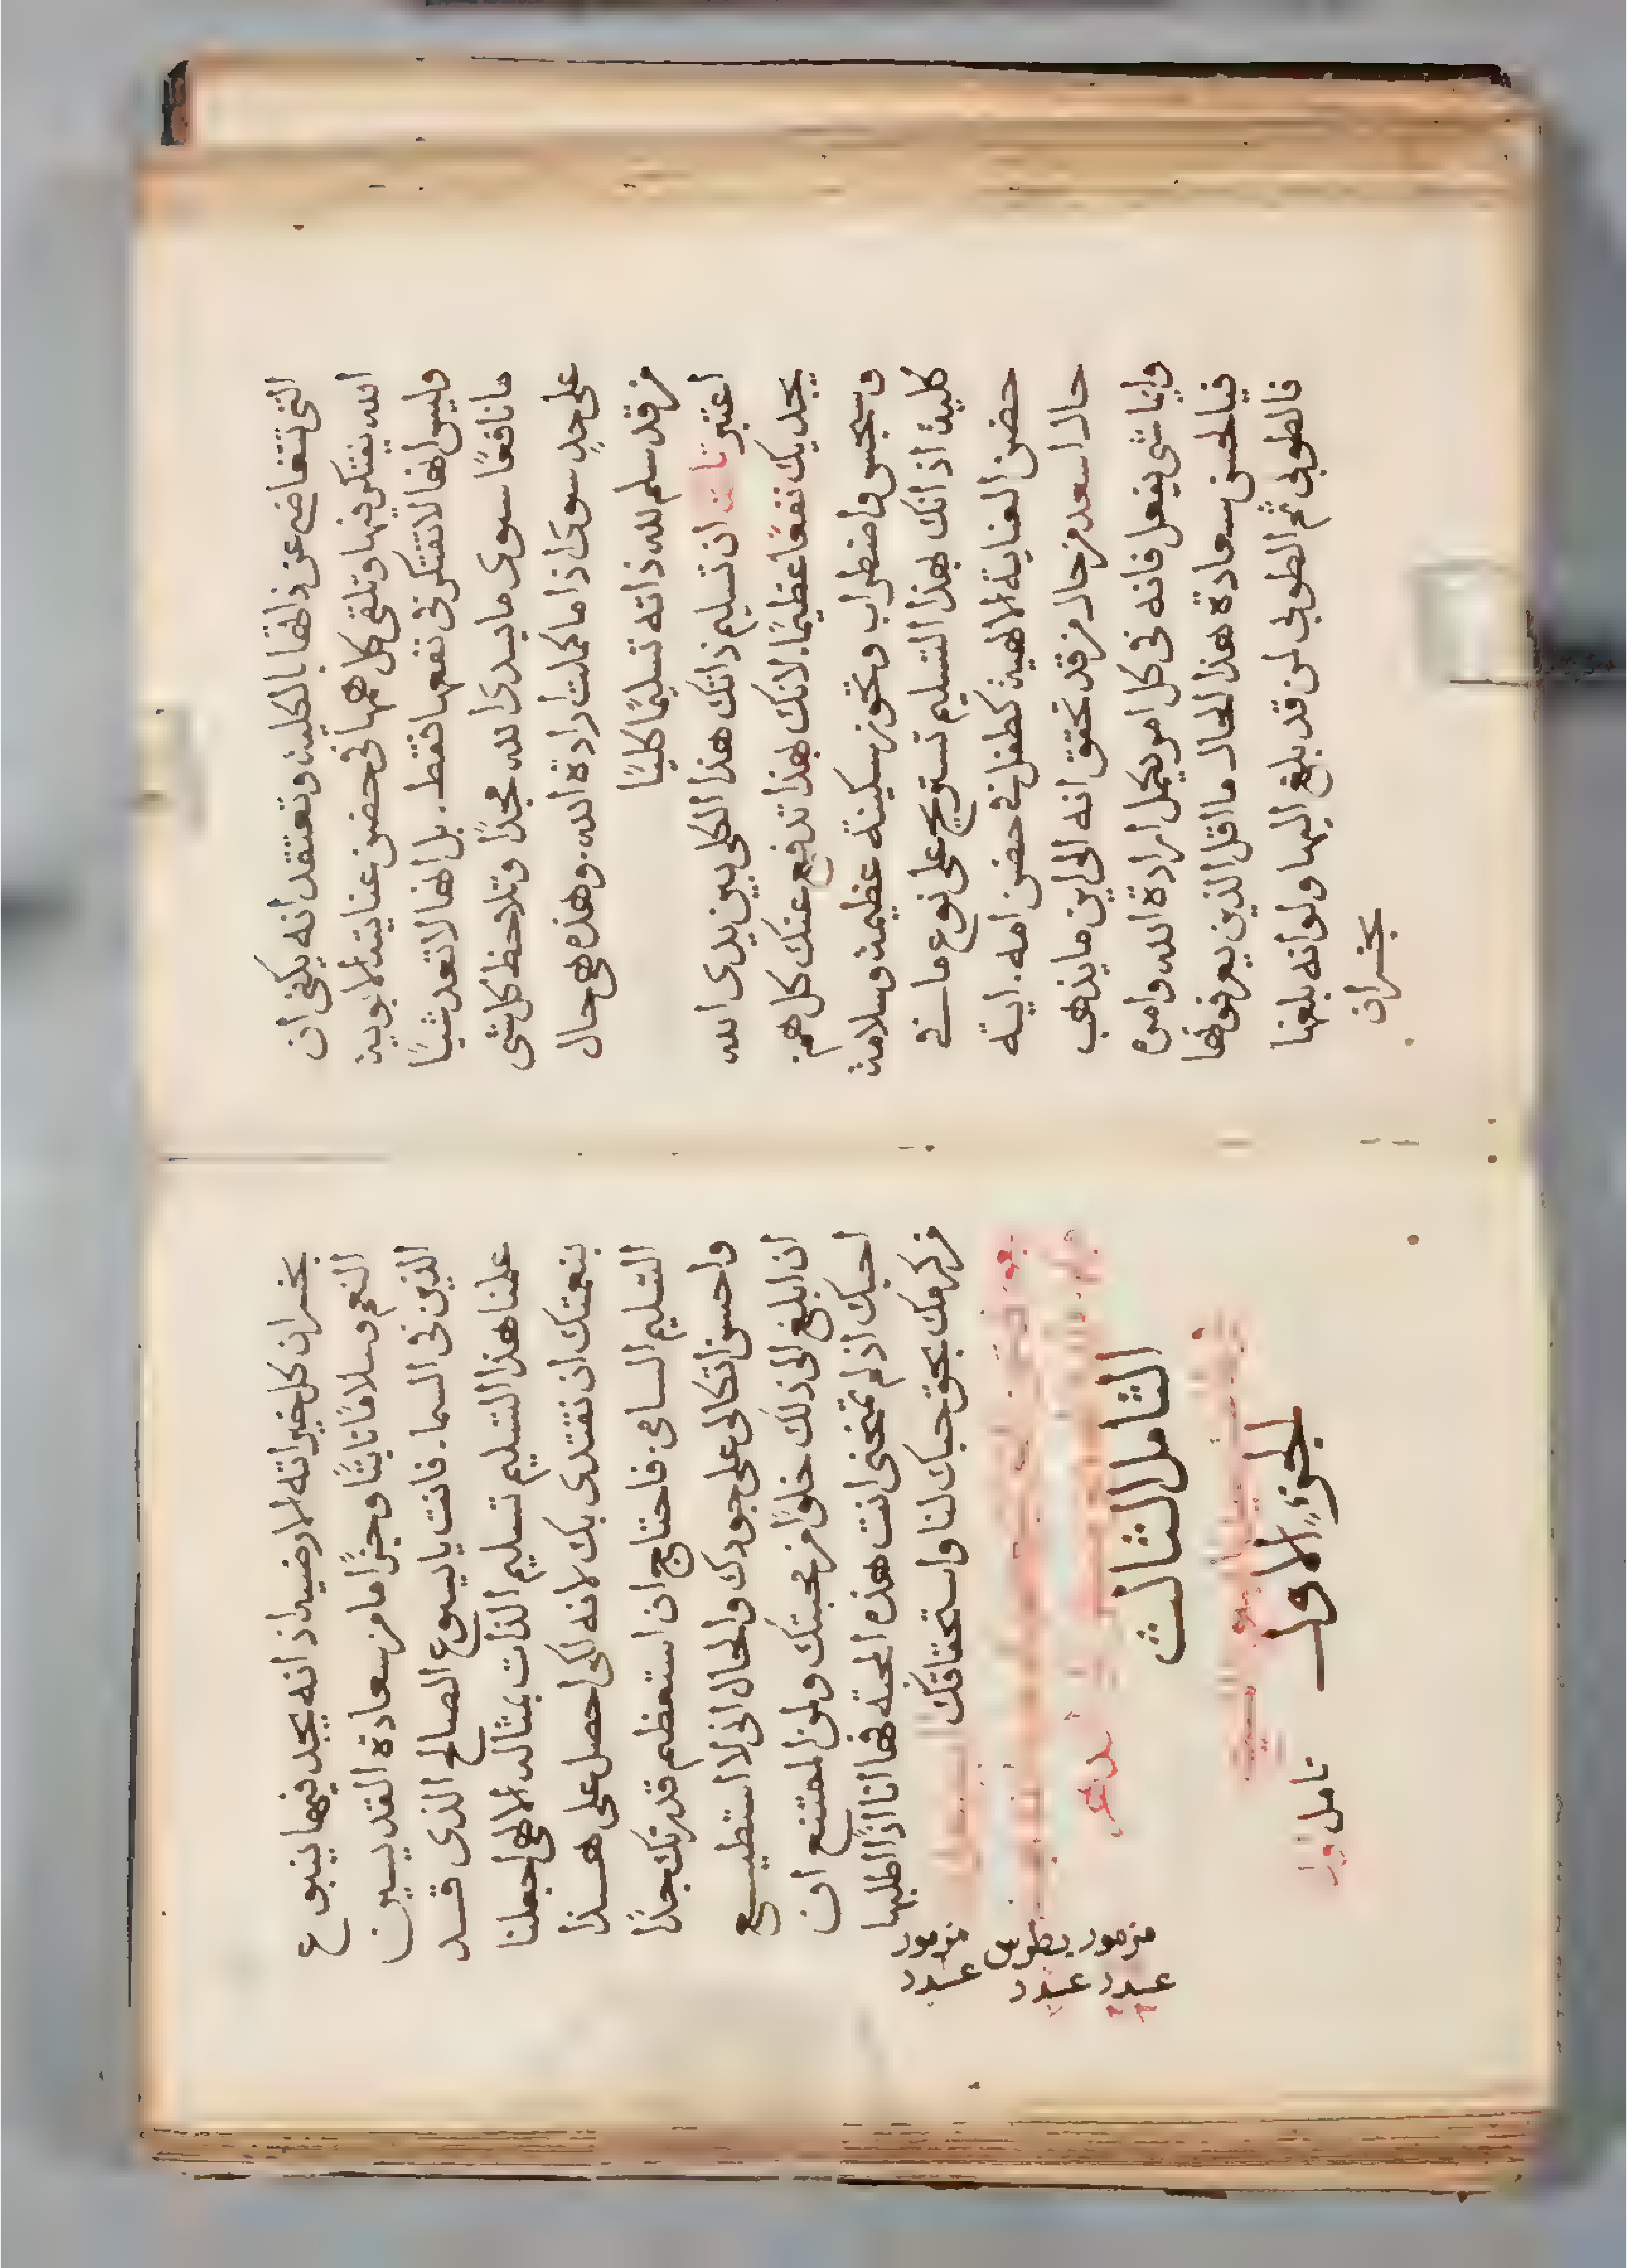 التى تتغاضى عن ذلقا بالكلية وتعتقد انه يكفى ان
الله يفتكر فيها وتلقى كل همها فى حضن عنايته الابوية
وليس انها لا تفتكر فى نفعها فقط. بل انها لا تعد شيئًا
ما نافعًا سوى ما يسدى لله مجدًا وتلاحظ كل شى
على حدٍ سوى اذا ما كملت ارادة الله. وهذه هى حال
من قد سلم لله ذاته تسليمًا كليًا
اعتبر ان تسليم ذاتك هذا الكلى بين يدى الله
يجديك نفعًا عظيمًا. لانك بهذا تدفع عنك كل همٍ
وسجس واضطراب وتحوز سكينة عظيمة وسلامة
كلية اذ انك بهذا التسليم تستريح على نوع ما فى
حضن العناية الالهية كطفل فى حضن امه. اية
حال اسعد من حال من قد تحقق انه الى اين ما يذهب
وايما شى يفعل فانه فى كل امر يكمل ارادة الله واموره
فيا لحسن سعادة هذا الحال ما اقل الذين يعرفونها
فالطوبى ثم الطوبى لمن قد بلغ اليها ولو انه بلغها
بخسران
بخسران كل خيراته الارضية اذ انه يجد فيها ينبوع
النعم وسلامًا ثابتًا وجزًا ما من سعادة القديسين
الذين فى السما. فانت يا يسوع الصالح الذى قد
علمنا هذا التسليم تسليم الذات بمثالك الالهى اجعلنا
بنعمتك ان نقتدى بك لانه لكى احصل على هذا
التسليم السامى فاحتاج ان استعظم قدرتك جدًا
واحسن اتكالى على جودك والحال انى لا استطيع
ان ابلغ الى ذلك خلوًا من محبتك ولمن الممتنع ان
احبك اذ لم تمنحنى انت هذه المحبة فها انا اذًا اطلبها
من كرمك بحق حبك لنا واستحقاقك
مزمور
عدد
بطرس
عدد
مزمور
عدد
التامل الثالث
الجزء الاول
تامل اولا